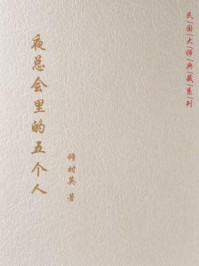 民国大师典藏系列
夜总会里的五个人
穆时英 著